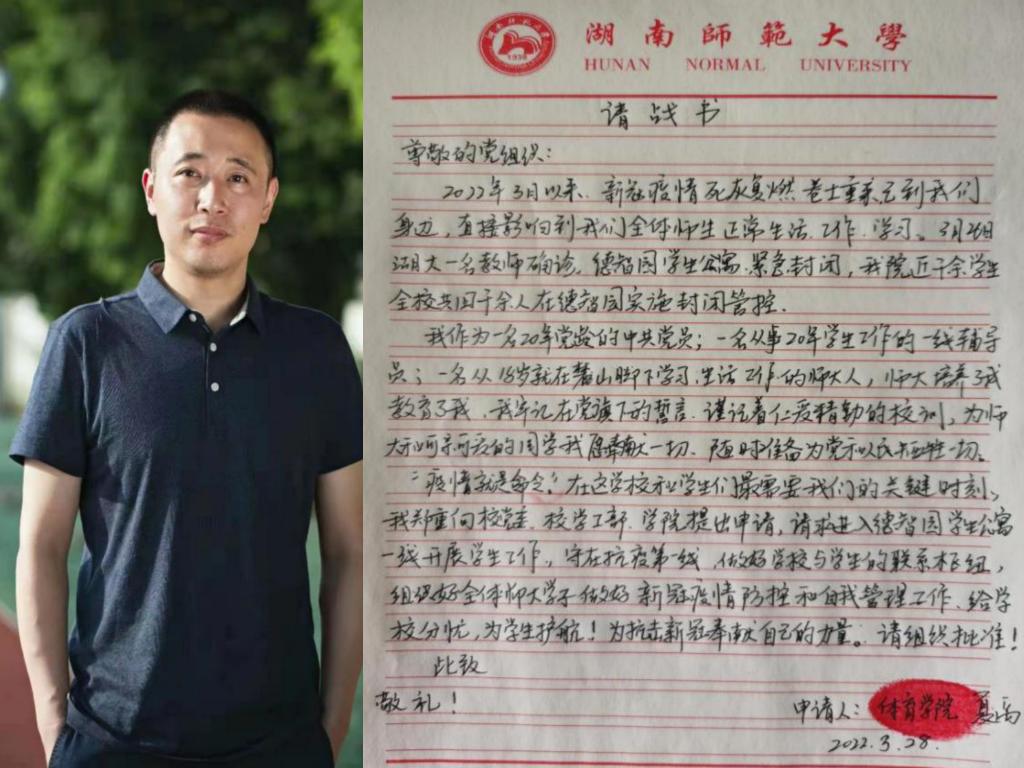 1938
湖南師範大學
HUNAN NORMAL UNIVERSITY
请战书
尊敬的党组织：
2022年3月以来、新冠疫情死灰复燃 卷土重来已到我们
身边，直接影响到我们全体师生正常生活、工作、学习。3月26日
湖大一名教师确诊，德智园学生公寓紧急封闭，我院近千余学生
全校共四千余人在德智园实施封闭管控.
我作为一名20年党龄的中共党员；一名从事20年学生工作的一线辅导
员；一名从18岁就在麓山脚下学习、生活、工作的师大人，师大培养了我
教育了我、我牢记在党旗下的誓言、谨记着仁爱精勤的校训，为师
大可亲可爱的同学我愿奉献一切、随时准备为党和人民牺牲一切。
“疫情就是命令”在这学校和学生们最需要我们的关键时刻、
我郑重向校党委、校学工部、学院提出申请，请求进入德智园学生公寓
一线开展学生工作，守在抗疫第一线，做好学校与学生的联系枢纽，
组织好全体师大学子做好新冠疫情防控和自我管理工作、给学
校分忧，为学生护航！为抗击新冠奉献自己的力量。请组织批准！
此致
敬礼！
申请人：体育学院 夏禹
2022.3.28.